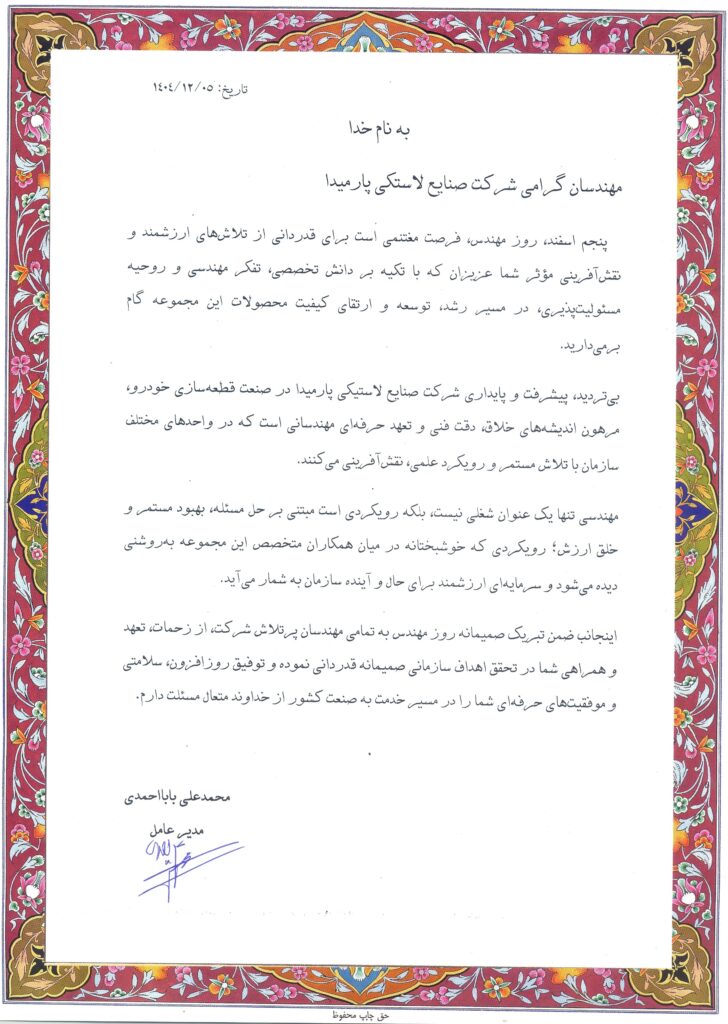 تاریخ: ۱۴۰۴/۱۲/۰۵
به نام خدا
مهندسان گرامی شرکت صنایع لاستکی پارمیدا
پنجم اسفند، روز مهندس، فرصت مغتنمی است برای قدردانی از تلاش‌های ارزشمند و
نقش‌آفرینی مؤثر شما عزیزان که با تکیه بر دانش تخصصی، تفکر مهندسی و روحیه
مسئولیت‌پذیری، در مسیر رشد، توسعه و ارتقای کیفیت محصولات این مجموعه گام
برمی‌دارید.
بی‌تردید، پیشرفت و پایداری شرکت صنایع لاستیکی پارمیدا در صنعت قطعه‌سازی خودرو،
مرهون اندیشه‌های خلاق، دقت فنی و تعهد حرفه‌ای مهندسانی است که در واحدهای مختلف
سازمان با تلاش مستمر و رویکرد علمی، نقش‌آفرینی می‌کنند.
مهندسی تنها یک عنوان شغلی نیست، بلکه رویکردی است مبتنی بر حل مسئله، بهبود مستمر و
خلق ارزش؛ رویکردی که خوشبختانه در میان همکاران متخصص این مجموعه به‌روشنی
دیده می‌شود و سرمایه‌ای ارزشمند برای حال و آینده سازمان به شمار می‌آید.
اینجانب ضمن تبریک صمیمانه روز مهندس به تمامی مهندسان پرتلاش شرکت، از زحمات، تعهد
و همراهی شما در تحقق اهداف سازمانی صمیمانه قدردانی نموده و توفیق روزافزون، سلامتی
و موفقیت‌های حرفه‌ای شما را در مسیر خدمت به صنعت کشور از خداوند متعال مسئلت دارم.
محمدعلی بابااحمدی
مدیر عامل
حق چاپ محفوظ